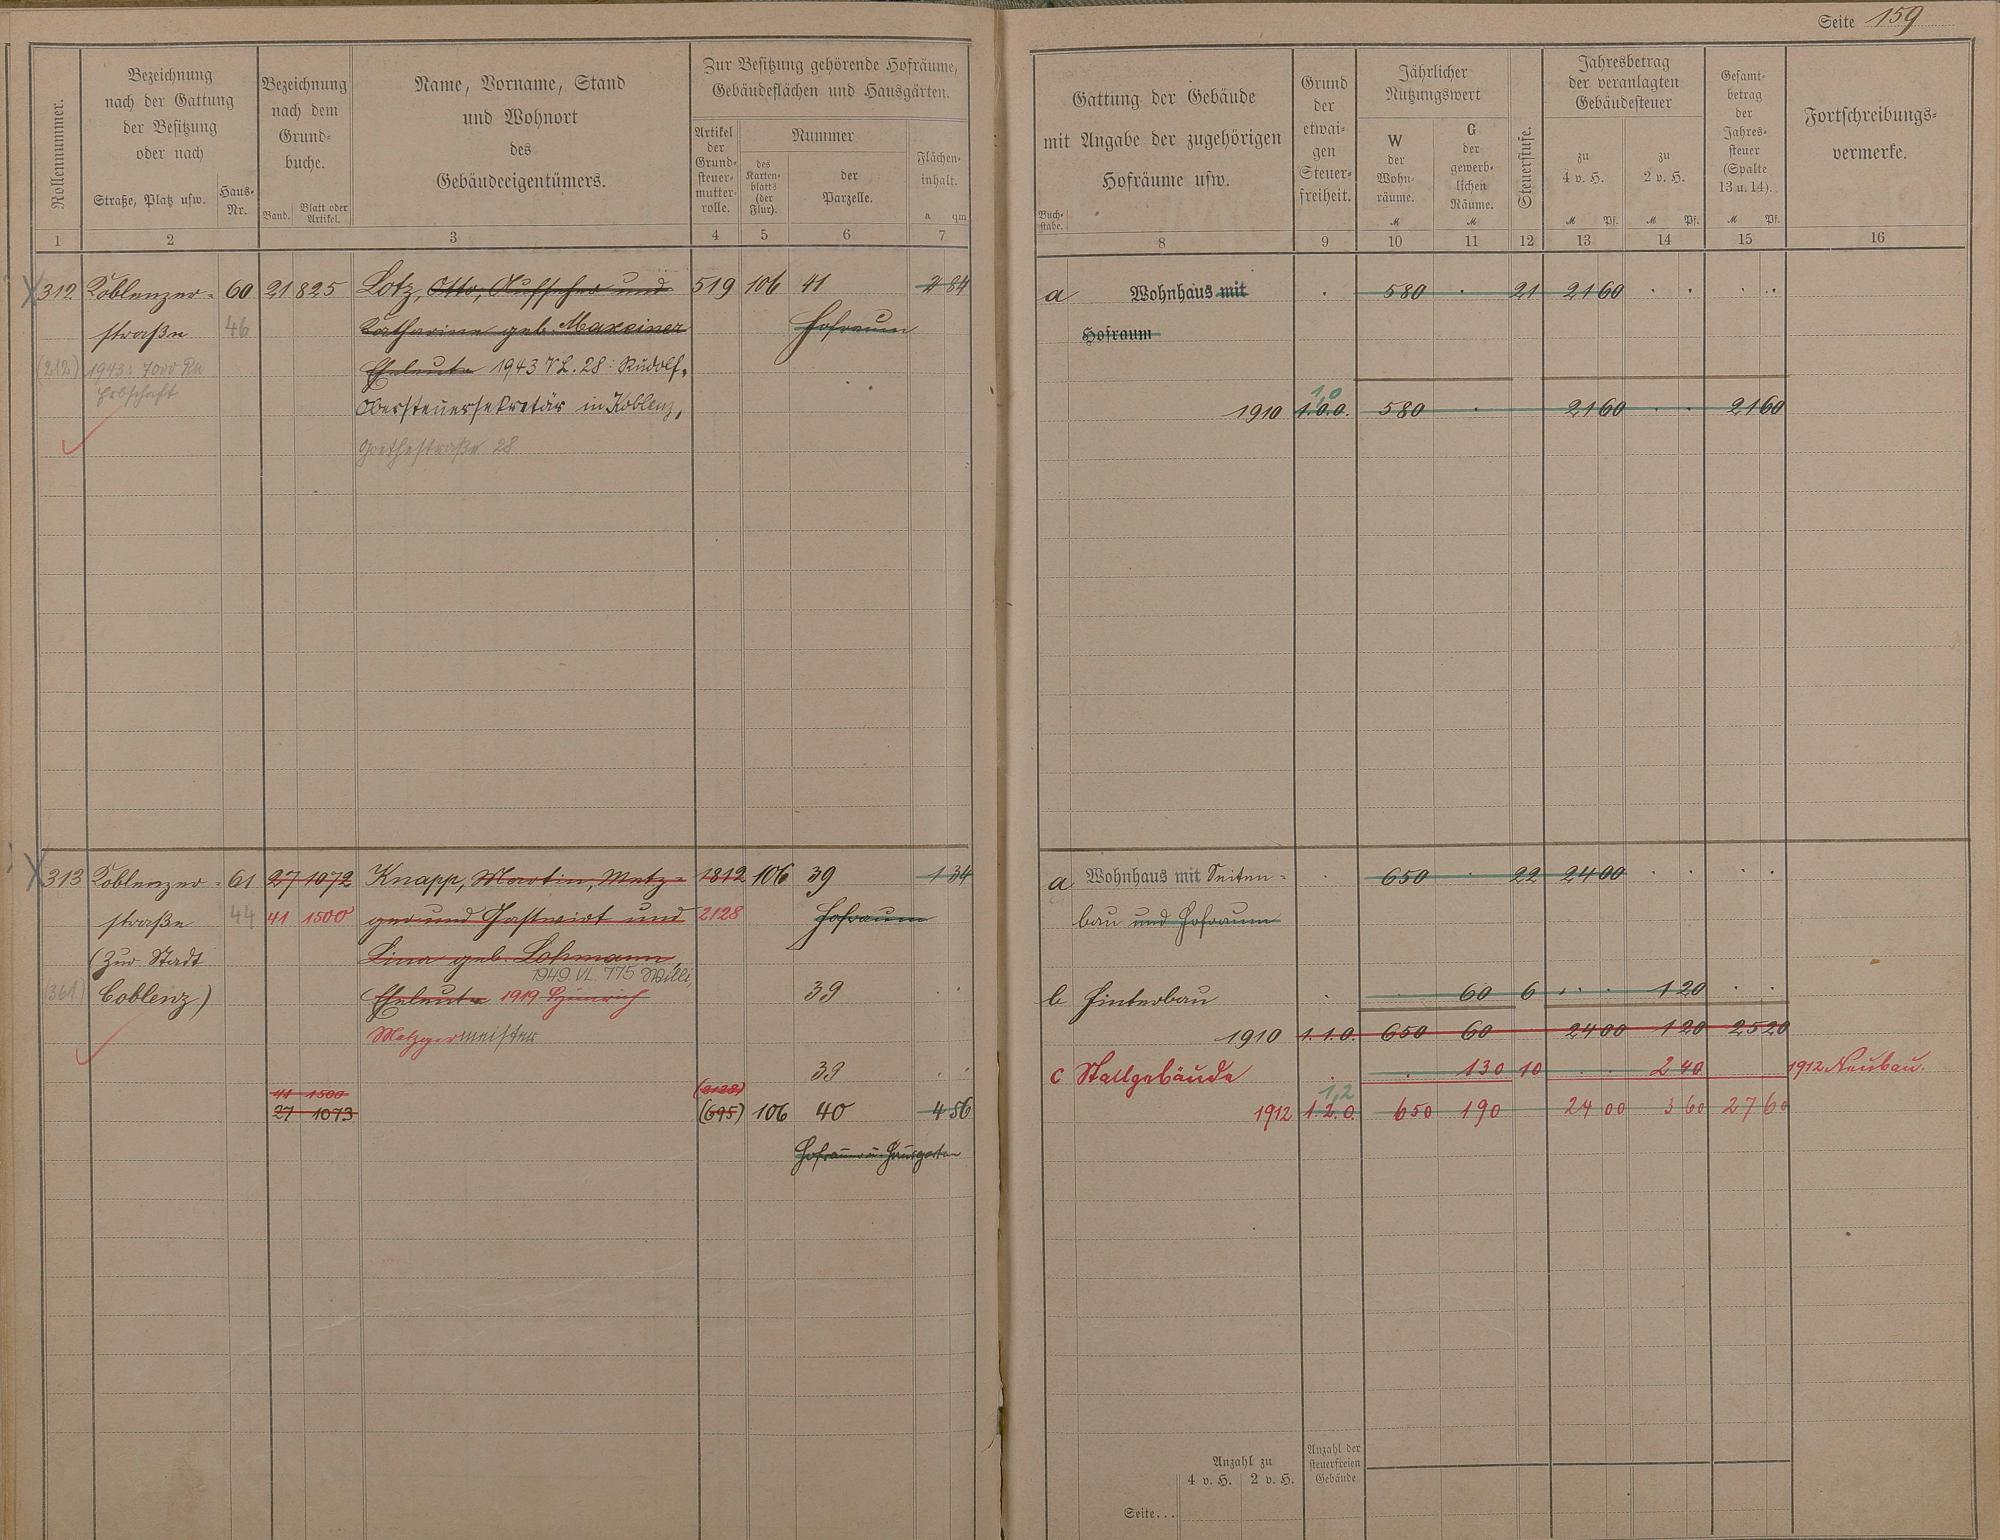 Seite 159
Rollennummer.
Bezeichnung
nach der Gattung
der Besitzung
oder nach
Straße, Platz usw.
Haus-
Nr.
Bezeichnung
nach dem
Grund-
buche.
Band.
Blatt oder
Artikel.
Name, Vorname, Stand
und Wohnort
des
Gebäudeeigentümers.
Zur Besitzung gehörende Hofräume,
Gebäudeflächen und Hausgärten.
Artikel
der
Grund-
steuer-
mutter-
rolle.
Nummer
des
Karten-
blatts
(der
Flur).
der
Parzelle.
Flächen-
inhalt.
a qm
1 2 3 4 5 6 7
312 Koblenzer- 60 21 825 Lotz, Otto, Aufseher und 519 106 41 2 84
straße 46 Katharina geb. Maxeiner Hofraum
(212) 1943: 7000 Rm Eheleute 1943 VL. 28: Rudolf,
Erbschaft Obersteuersekretär in Koblenz,
Goethestraße 28
313 Koblenzer- 61 27 1072 Knapp, Martin, Metz- 1812 106 39 1 34
straße 44 41 1500 ger und Gastwirt und 2128 Hofraum
(Zur Stadt Lina geb. Lohmann,
1949 VL. 775 Willi,
(361) Coblenz) Eheleute 1919 Heinrich 39
Metzgermeister
39
41 1500 (2128)
27 1073 (695) 106 40 4 56
Hofraum u. Hausgarten
Gattung der Gebäude
mit Angabe der zugehörigen
Hofräume usw.
Buch-
stabe.
Grund
der
etwai-
gen
Steuer-
freiheit.
Jährlicher
Nutzungswert
W
der
Wohn-
räume.
M
G
der
gewerb-
lichen
Räume.
M
Steuerstufe.
Jahresbetrag
der veranlagten
Gebäudesteuer
zu
4 v. H.
M Pf.
zu
2 v. H.
M Pf.
Gesamt-
betrag
der
Jahres-
steuer
(Spalte
13 u. 14).
M Pf.
Fortschreibungs-
vermerke.
8 9 10 11 12 13 14 15 16
a Wohnhaus mit . 580 . 21 21 60 . . . .
Hofraum
1,0
1910 1.0.0. 580 . 21 60 . . 21 60
a Wohnhaus mit Seiten- . 650 . 22 24 00 . . . .
bau und Hofraum
b Hinterbau . . 60 6 . . 1 20 . .
1910 1.1.0. 650 60 24 00 1 20 25 20
c Stallgebäude . . 130 10 . . 2 40 1912 Neubau.
1,2
1912 1.2.0. 650 190 24 00 3 60 27 60
Anzahl zu
4 v. H. 2 v. H.
Anzahl der
steuerfreien
Gebäude
Seite...